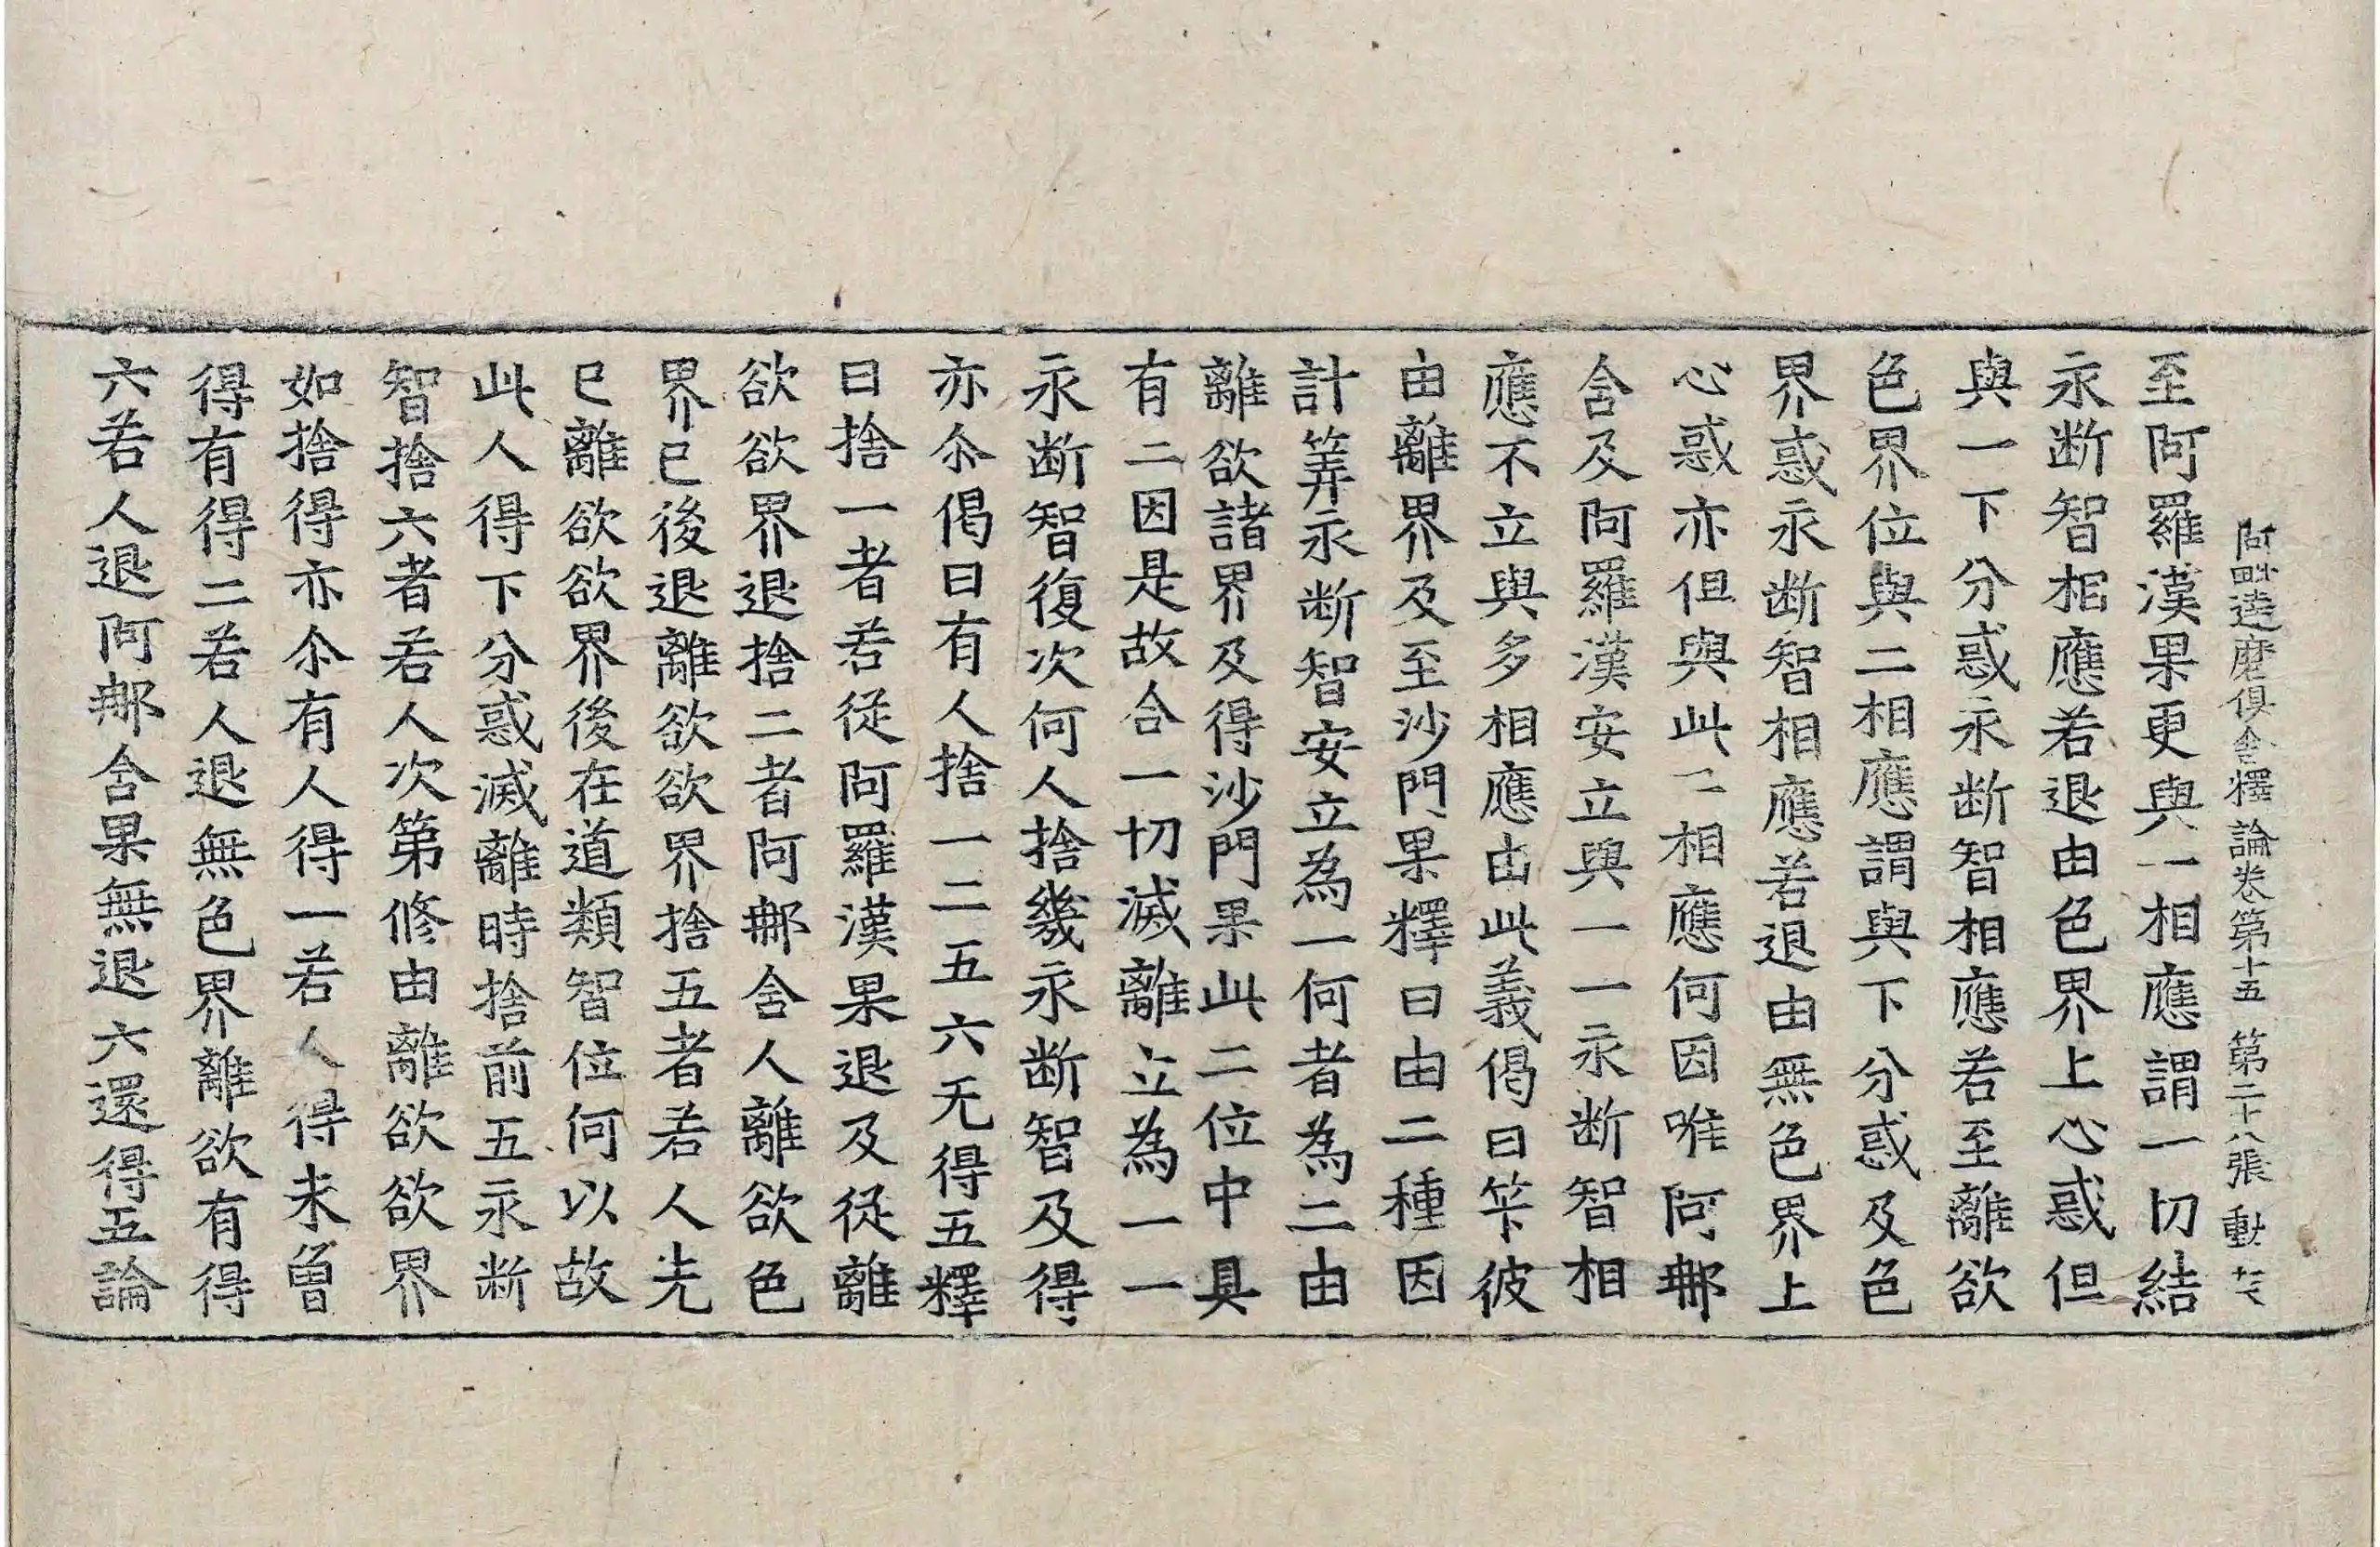 阿毗達磨俱舍釋論卷第十五 第二十八張 動
至阿羅漢果更與一相應謂一切結
永断智相應若退由色界上心惑但
與一下分惑永断智相應若至離欲
色界位與二相應謂與下分惑及色
界惑永断智相應若退由無色界上
心惑亦但與此二相應何因唯阿那
含及阿羅漢安立與一一永断智相
應不立與多相應由此義偈曰笇彼
由離界及至沙門果釋曰由二種因
計筭永断智安立為一何者為二由
離欲諸界及得沙門果此二位中具
有二因是故合一切滅離立為一一
永断智復次何人捨幾永断智及得
亦尒偈曰有人捨一二五六无得五釋
曰捨一者若從阿羅漢果退及從離
欲欲界退捨二者阿那含人離欲色
界已後退離欲欲界捨五者若人先
已離欲欲界後在道類智位何以故
此人得下分惑滅離時捨前五永断
智捨六者若人次第修由離欲欲界
如捨得亦尒有人得一若人得未曾
得有得二若人退無色界離欲有得
六若人退阿那含果無退六還得五論